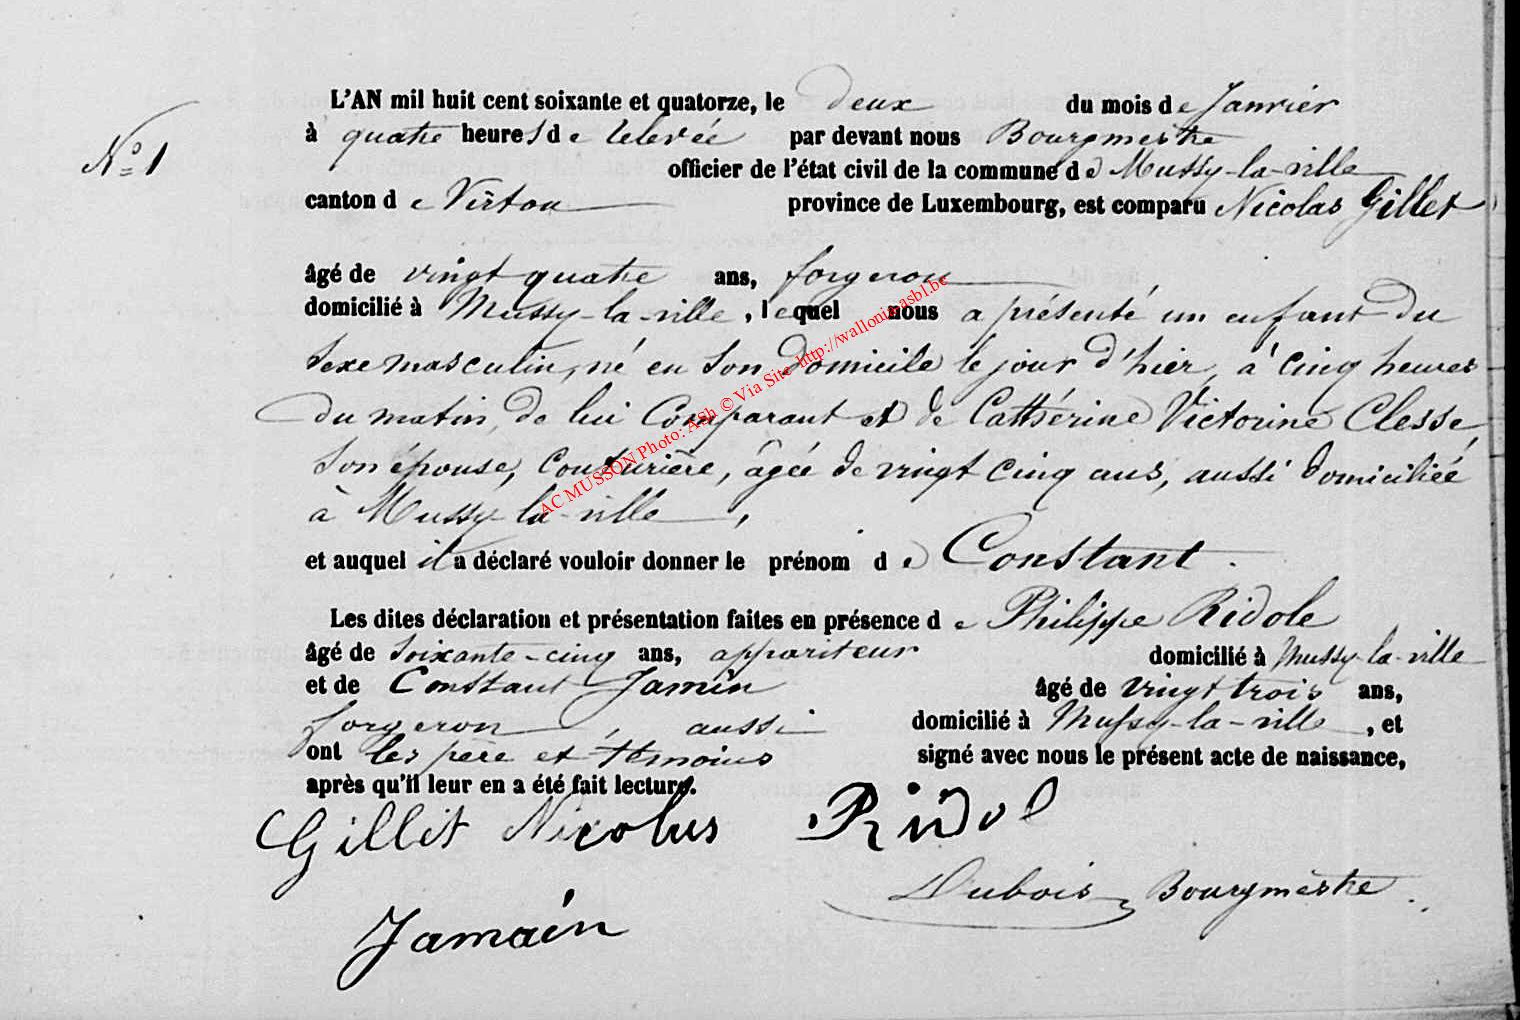 L'AN mil huit cent soixante et quatorze, le deux du mois de Janvier
N° 1
à quatre heures de relevée par devant nous Bourgmestre
officier de l'état civil de la commune de Mussy-la-ville
canton de Virton province de Luxembourg, est comparu Nicolas Gillet
âgé de vingt quatre ans, forgeron
domicilié à Mussy-la-ville, lequel nous a présenté un enfant du
sexe masculin, né en son domicile le jour d'hier, à cinq heures
du matin, de lui Comparant et de Cathérine Victorine Clesse
son épouse, Couturière, âgée de vingt cinq ans, aussi domiciliée
à Mussy-la-ville,
et auquel il a déclaré vouloir donner le prénom de Constant.
Les dites déclaration et présentation faites en présence de Philippe Ridole
âgé de soixante-cinq ans, appariteur domicilié à Mussy-la-ville
et de Constant Jamin âgé de vingt trois ans,
forgeron, aussi domicilié à Mussy-la-ville, et
ont les père et témoins signé avec nous le présent acte de naissance,
après qu'il leur en a été fait lecture.
Gillet Nicolas Ridol
Dubois Bourgmestre.
Jamain
AC MUSSON Photo: Ash © Via Site http://wallonia-asbl.be